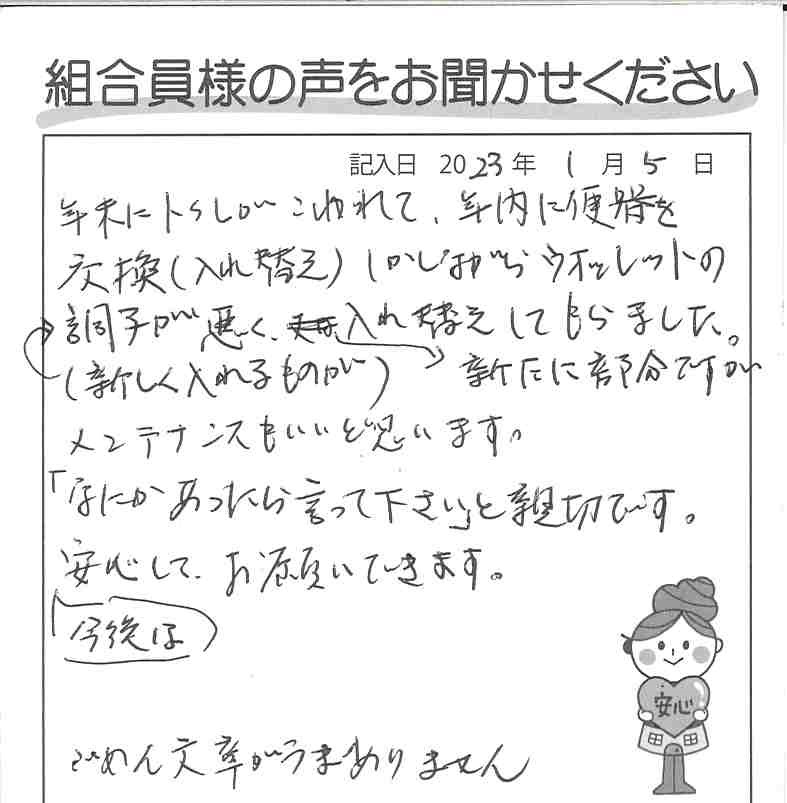 組合員様の声をお聞かせください
記入日 2023年 1月 5日
年末にトイレがこわれて、年内に便器を
交換(入れ替え)しかしながらウオッシュレットの
調子が悪く、入れ替えしてもらました。
(新しく入れるものが) 新たに部分ですが
メンテナンスもいいと思います。
「なにかあったら言って下さい」と親切です。
安心して、お願いできます。
今後は
安心
ごめん文章がうまありません